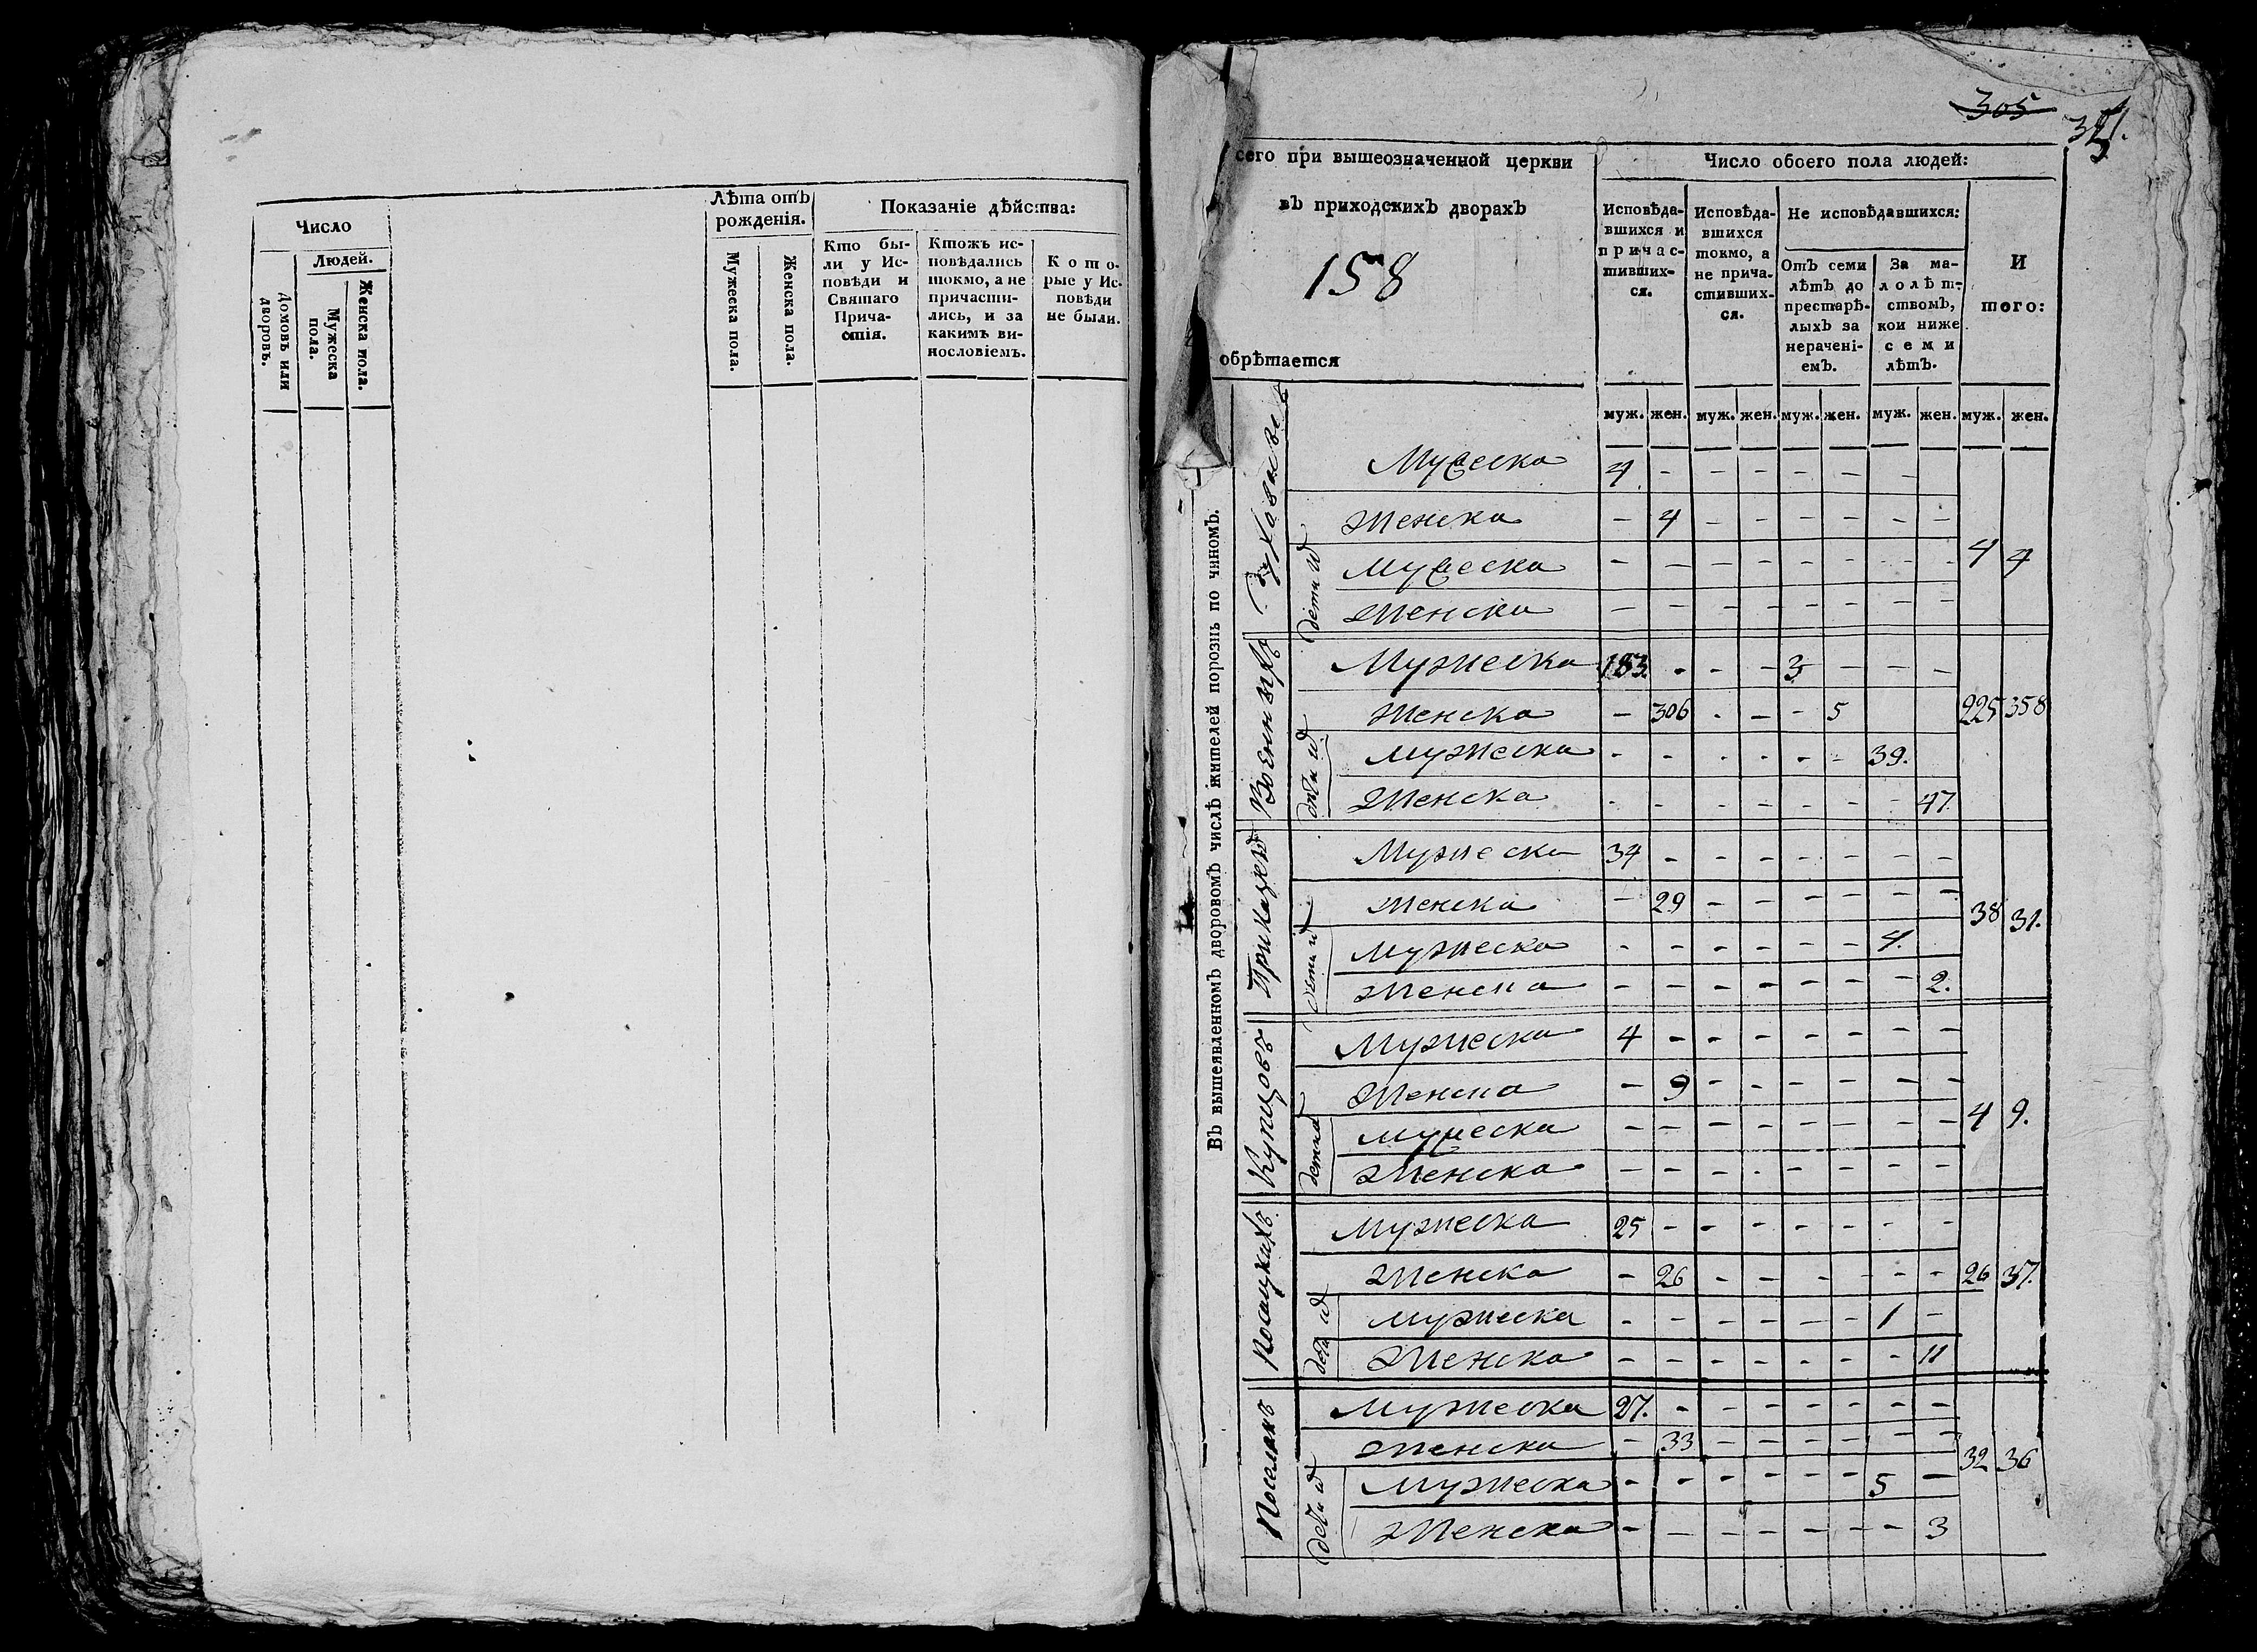 Число
Людей.
Домовъ или дворовъ.
Мужеска пола.
Женска пола.
Лѣта отъ
рожденія.
Мужеска пола.
Женска пола.
Показаніе дѣйства:
Кто бы-
ли у Ис-
повѣди и
Святаго
Прича-
стія.
Ктожъ ис-
повѣдались
токмо, а не
причасти-
лись, и за
какимъ ви-
нословіемъ.
К о т о-
рые у Ис-
повѣди
не были.
305
321.
сего при вышеозначенной церкви
въ приходскихъ дворахъ
158
обрѣтается
Число обоего пола людей:
Исповѣда-
вшихся и
п р и ч а с-
тивших-
ся.
Исповѣда-
вшихся
токмо, а
не прича-
стивших-
ся.
Не исповѣдавшихся:
Отъ семи
лѣтъ до
престарѣ-
лыхъ за
нерачені-
емъ.
За ма-
л о л ѣ т-
ствомъ,
кои ниже
с е м и
лѣтъ.
И
того:
муж. жен. муж. жен. муж. жен. муж. жен. муж. жен.
Въ вышеявленномъ дворовомъ числѣ жителей порознь по чиномъ.
Мужеска 4 - - - - - - -
Женска - 4 - - - - - -
4 4
дети ид
Мужеска - - - - - - - -
Женска - - - - - - - -
Военныхъ
Мужеска 183. - - - 3 - - -
Женска - 306 - - - 5
225 358
дети ид
Мужеска - - - - - - 39.
Женска - - - - - - - 47.
Мужеска 34 - - - - - - -
Женска - 29 - - - - - -
38 31.
дети ид
Мужеска - - - - - - 4.
Женска - - - - - - - 2.
Купцовъ
Мужеска 4 - - - - - - -
Женска - 9 - - - - - -
4 9.
Мужеска - - - - - - - -
Женска - - - - - - - -
Посацкихъ
Мужеска 25 - - - - - - -
Женска - 26 - - - - - -
26 37.
дети ид
Мужеска - - - - - - 1 -
Женска - - - - - - - 11
Поселянъ
Мужеска 27. - - - - - - -
Женска - 33 - - - - - -
32 36
дети ид
Мужеска - - - - - - 5 -
Женска - - - - - - - 3